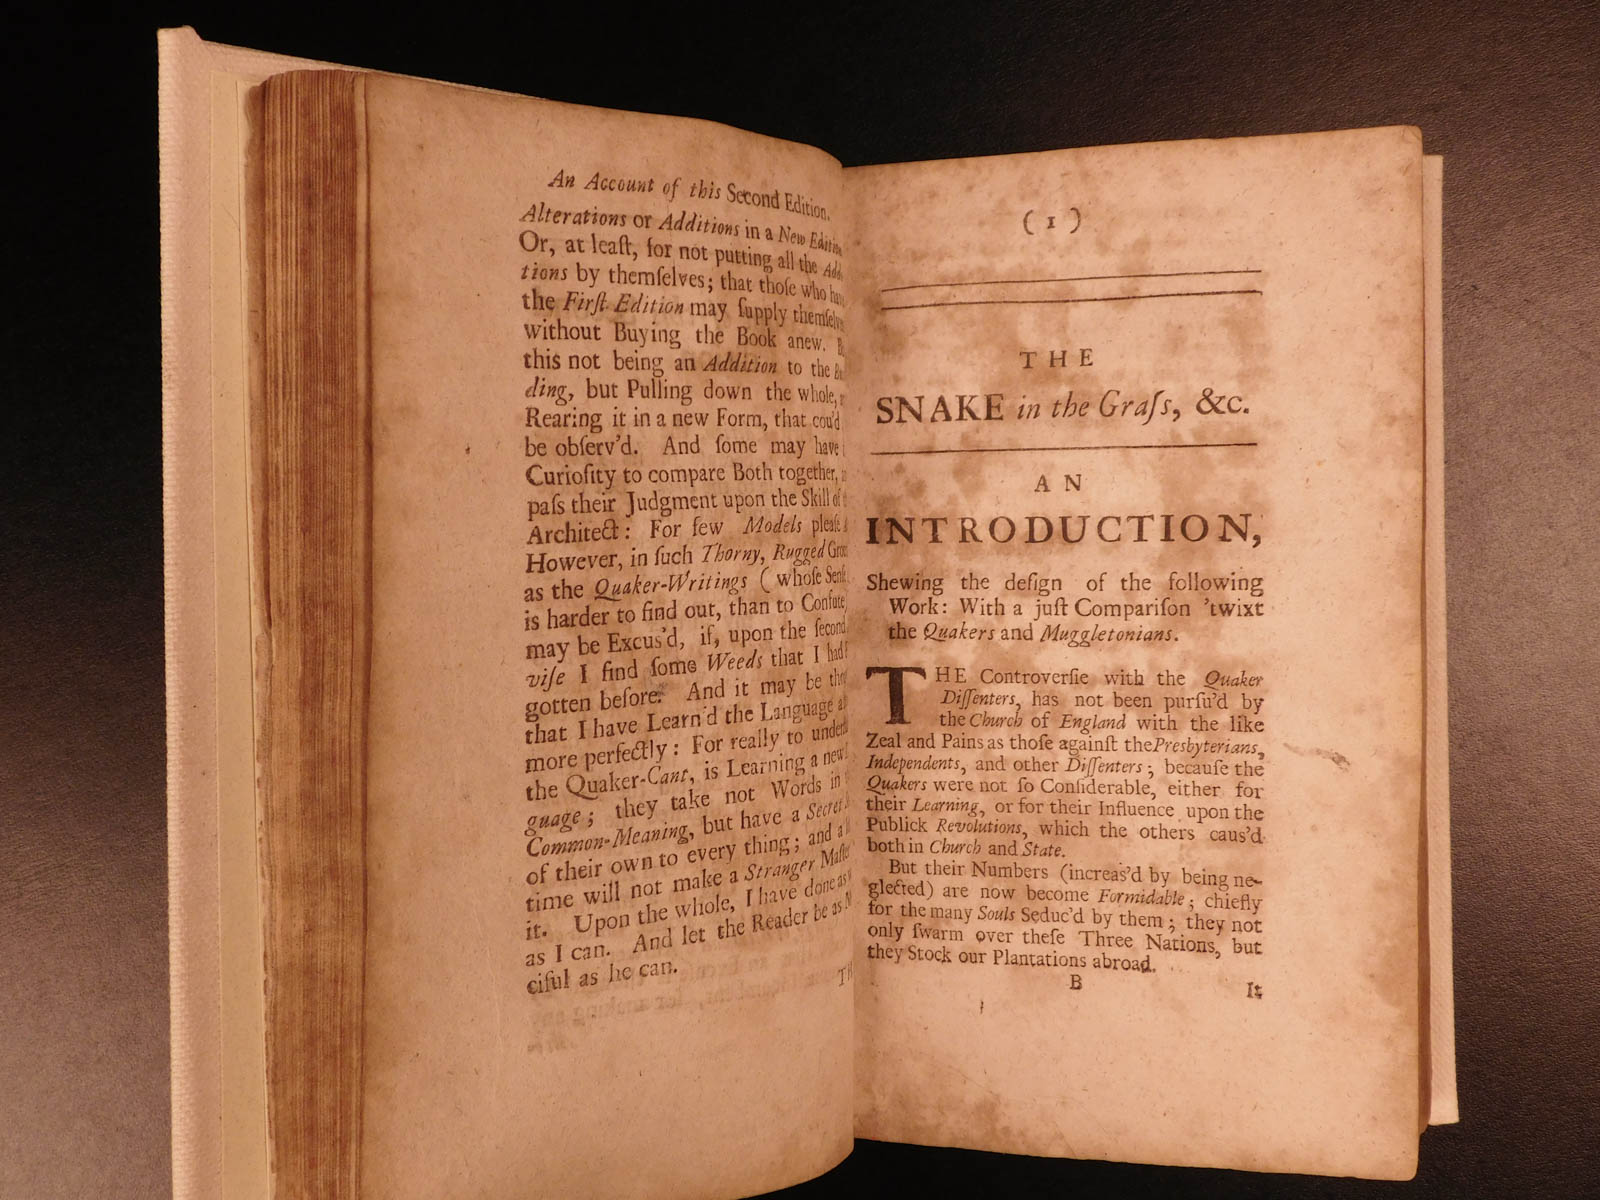 An Account of this Second Edition.
Alterations or Additions in a New Edition
Or, at leaſt, for not putting all the Add
tions by themſelves; that thoſe who hav
the Firſt Edition may ſupply themſelv
without Buying the Book anew.
this not being an Addition to the
ding, but Pulling down the whole,
Rearing it in a new Form, that cou'd
be obſerv'd. And ſome may have
Curioſity to compare Both together,
paſs their Judgment upon the Skill of
Architect: For few Models pleaſe
However, in ſuch Thorny, Rugged Gro
as the Quaker-Writings (whoſe Senſe
is harder to find out, than to Confute,
may be Excus'd, if, upon the ſecond
viſe I find ſome Weeds that I had
gotten before. And it may be
that I have Learn'd the Language
more perfectly: For really to underſt
the Quaker-Cant, is Learning a new
guage; they take not Words in
Common-Meaning, but have a Secret
of their own to every thing; and a
time will not make a Stranger Maſte
it. Upon the whole, I have done as
as I can. And let the Reader be as
ciful as he can.
TH
(1)
THE
SNAKE in the Graſs, &c.
AN
INTRODUCTION,
Shewing the deſign of the following
Work: With a juſt Compariſon 'twixt
the Quakers and Muggletonians.
THE Controverſie with the Quaker
Diſſenters, has not been purſu'd by
the Church of England with the like
Zeal and Pains as thoſe againſt the Presbyterians,
Independents, and other Diſſenters; becauſe the
Quakers were not ſo Conſiderable, either for
their Learning, or for their Influence upon the
Publick Revolutions, which the others caus'd
both in Church and State.
But their Numbers (increas'd by being ne-
glected) are now become Formidable; chiefly
for the many Souls Seduc'd by them; they not
only ſwarm over theſe Three Nations, but
they Stock our Plantations abroad.
B
It